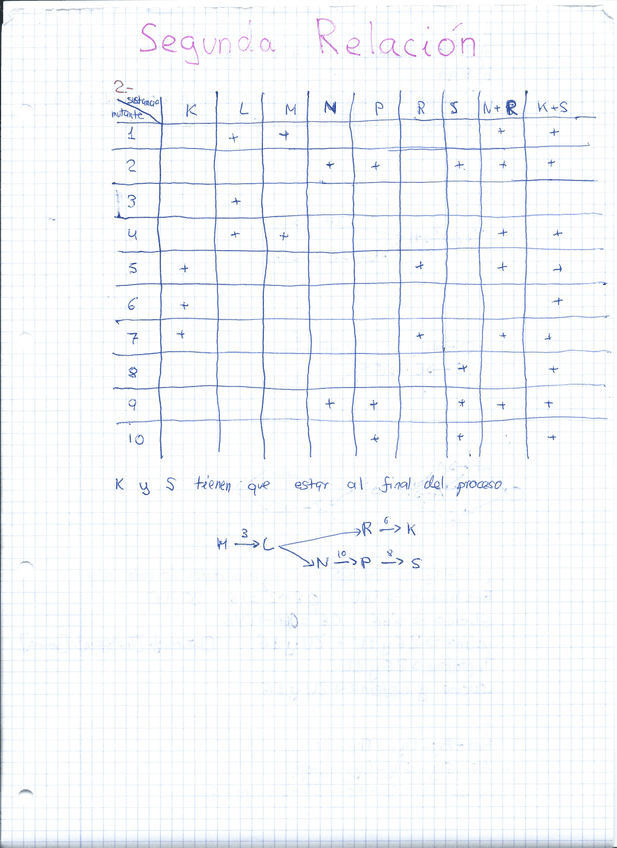 Segunda Relación
2.-
sustancia
mutante K L M N P R S N+R K+S
1 + + + +
2 + + + + +
3 +
4 + + + +
5 + + + +
6 + +
7 + + + +
8 + +
9 + + + + +
10 + + +
K y S tienen que estar al final del proceso.
M 3→ L → R 6→ K
→ N 10→ P 8→ S